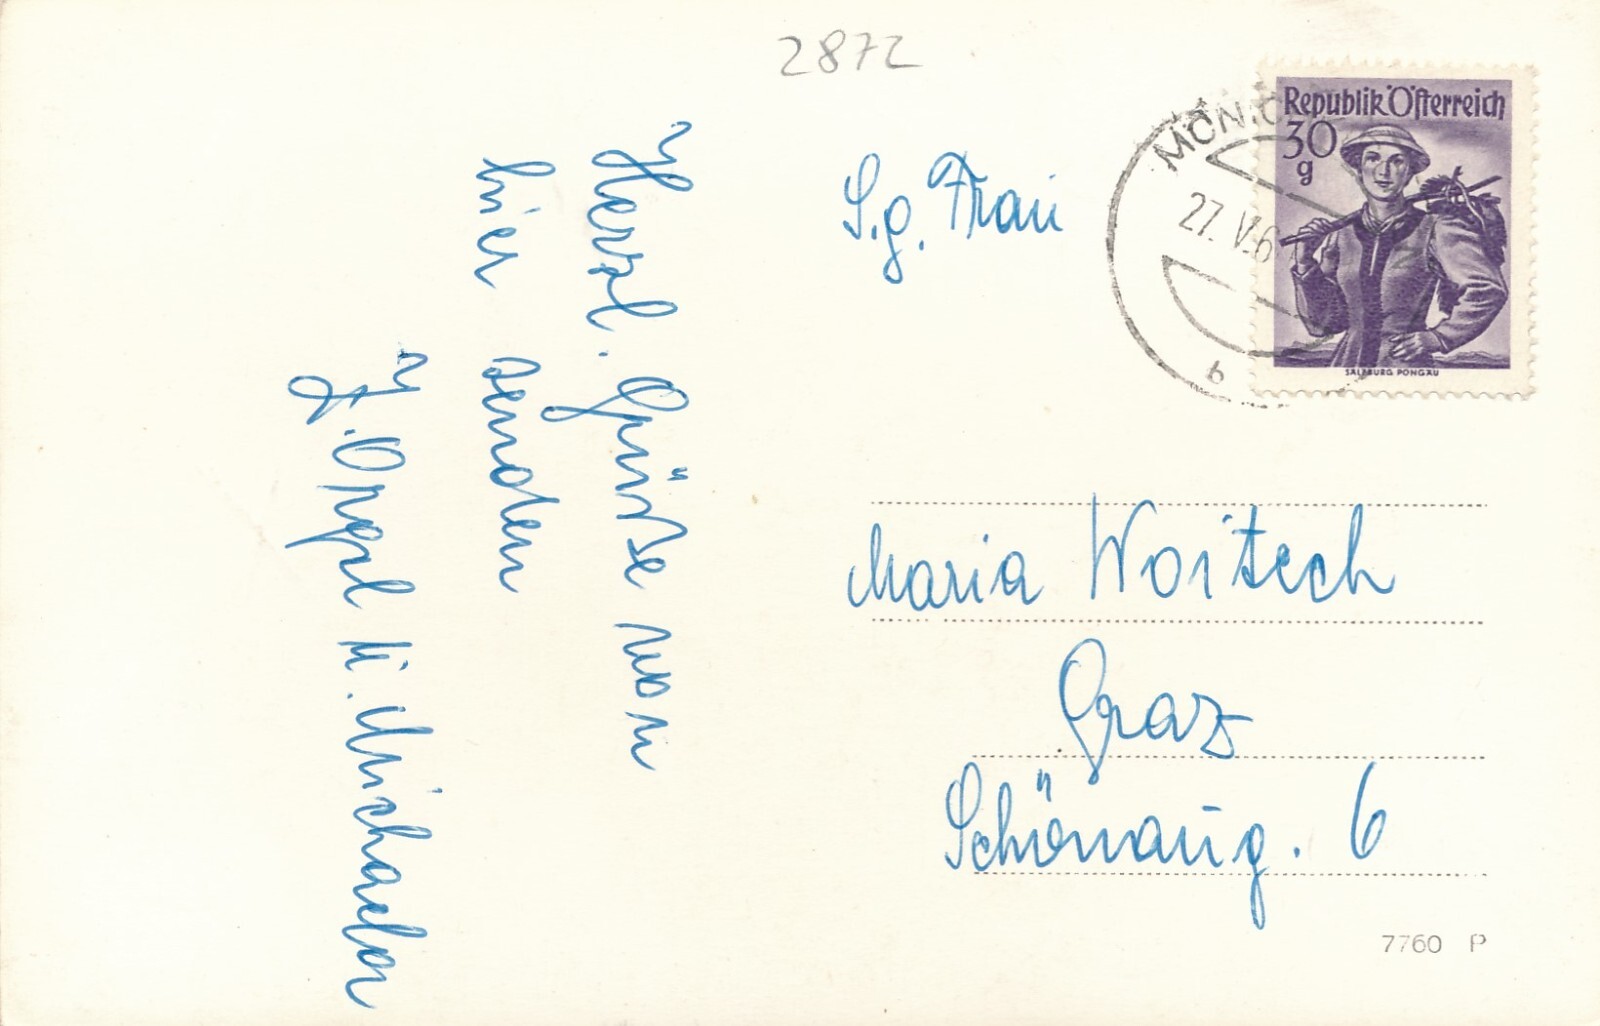 2872
Republik Österreich
30
g
SALZBURG PONGAU
27. V. 6
b
S.g. Frau
Maria Woitsech
Graz
Schönaug. 6
7760 P
Herzl. Grüße von
hier senden
J. u. Michaela